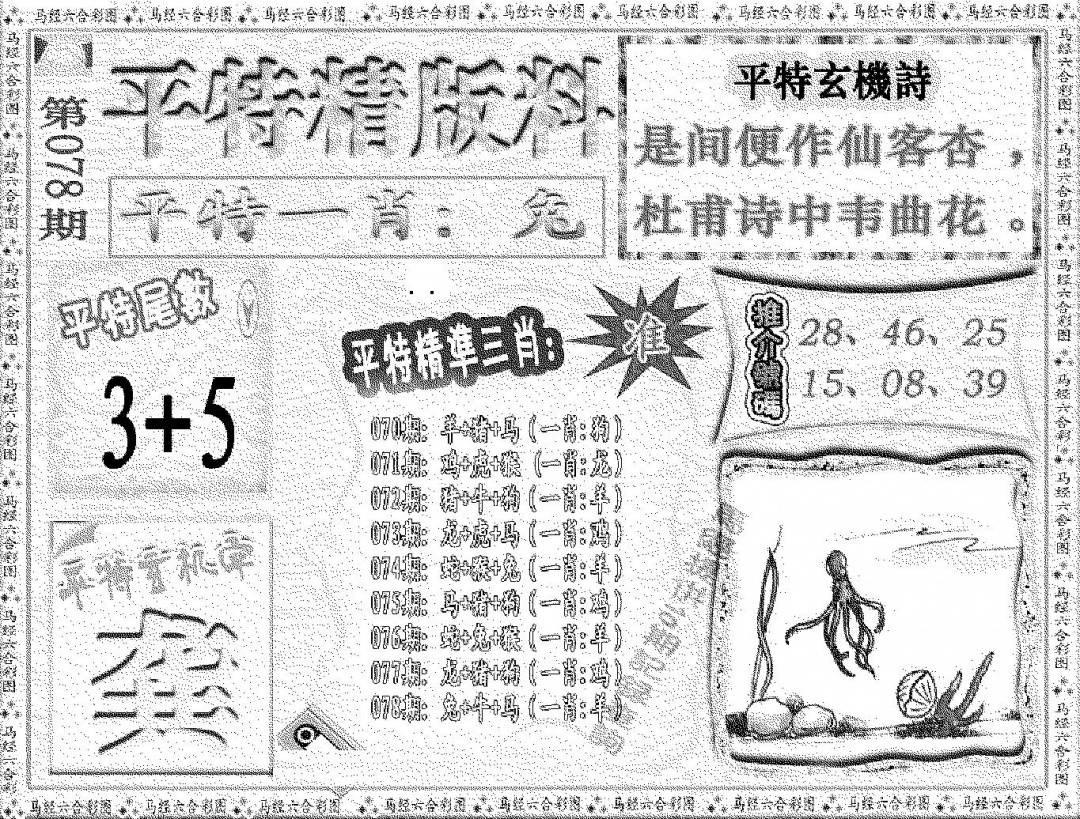 马经六合彩图 马经六合彩图 马经六合彩图 马经六合彩图 马经六合彩图 马经六合彩图 马经六合彩图 马经六合彩图 马经六合彩图
第078期
平特精版料
平特一肖：兔
平特玄機詩
是间便作仙客杏，
杜甫诗中韦曲花。
平特尾数
3+5
平特精準三肖：
准
070期：羊+猪+马（一肖:狗）
071期：鸡+虎+猴（一肖:龙）
072期：猪+牛+狗（一肖:羊）
073期：龙+虎+马（一肖:鸡）
074期：蛇+猴+兔（一肖:羊）
075期：马+猪+狗（一肖:鸡）
076期：蛇+兔+猴（一肖:羊）
077期：龙+猪+狗（一肖:鸡）
078期：兔+牛+马（一肖:羊）
推介號碼
28、46、25
15、08、39
平特玄机字
马经六合彩图 马经六合彩图 马经六合彩图 马经六合彩图 马经六合彩图 马经六合彩图 马经六合彩图 马经六合彩图 马经六合彩图